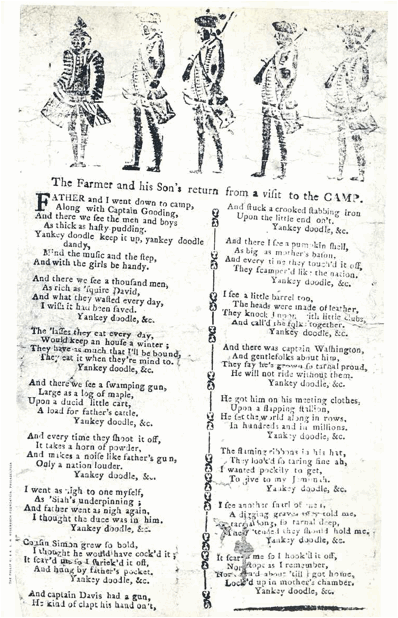 The Farmer and his Son's return from a visit to the CAMP.
FATHER and I went down to camp,
Along with Captain Gooding,
And there we see the men and boys
As thick as hasty pudding.
Yankey doodle keep it up, yankey doodle
dandy,
Mind the music and the step,
And with the girls be handy.
And there we see a thousand men,
As rich as 'squire David,
And what they wasted every day,
I wish it had been saved.
Yankey doodle, &c.
The 'lasses they eat every day,
Would keep an house a winter ;
They have as much that I'll be bound,
They eat it when they're mind to.
Yankey doodle, &c.
And there we see a swamping gun,
Large as a log of maple,
Upon a ducid little cart,
A load for father's cattle.
Yankey doodle, &c.
And every time they shoot it off,
It takes a horn of powder,
And makes a noise like father's gun,
Only a nation louder.
Yankey doodle, &c.
I went as nigh to one myself,
As 'Siah's underpinning ;
And father went as nigh again,
I thought the duce was in him.
Yankey doodle, &c.
Cousin Simon grew so bold,
I thought he would have cock'd it ;
It scar'd me so I shriek'd it off,
And hung by father's pocket.
Yankey doodle, &c.
And captain Davis had a gun,
He kind of clapt his hand on't,
And stuck a crooked stabbing iron
Upon the little end on't.
Yankey doodle, &c.
And there I see a pumpkin shell,
As big as mother's bason,
And every time they touch'd it off,
They scamper'd like the nation.
Yankey doodle, &c.
I see a little barrel too,
The heads were made of leather,
They knock'd upon with little clubs,
And call'd the folks together.
Yankey doodle, &c.
And there was captain Washington,
And gentlefolks about him,
They say he's grown so tarnal proud,
He will not ride without them.
Yankey doodle, &c.
He got him on his meeting clothes,
Upon a slapping stallion,
He set the world along in rows,
In hundreds and in millions.
Yankey doodle, &c.
The flaming ribbons in his hat,
They look'd so taring fine ah,
I wanted pockily to get,
To give to my Jemimah.
Yankey doodle, &c.
I see another snarl of men,
A digging graves they told me,
So tarnal long, so tarnal deep,
They 'tended they should hold me.
Yankey doodle, &c.
It scar'd me so I hook'd it off,
Nor stops as I remember,
Nor turn'd about 'till I got home,
Lock'd up in mother's chamber.
Yankey doodle, &c.